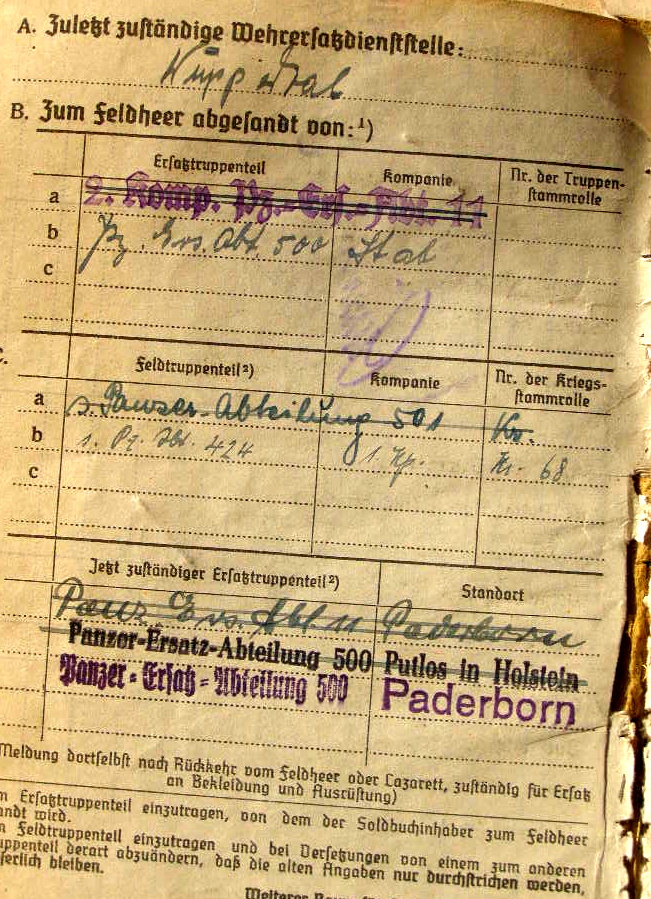 A. Zuletzt zuständige Wehrersatzdienststelle:
Wuppertal
B. Zum Feldheer abgesandt von:¹)
Ersatztruppenteil Kompanie Nr. der Truppen-
stammrolle
a 2. Komp. Pz.-Ers.-Abt. 11
b Pz. Ers. Abt. 500 Stab
c
Feldtruppenteil²) Kompanie Nr. der Kriegs-
stammrolle
a s. Panzer-Abteilung 501
b 1. Pz. Abt. 424 1. Kp. Nr. 68
c
Jetzt zuständiger Ersatztruppenteil²) Standort
Panz Ers. Abt 11 Paderborn
Panzer-Ersatz-Abteilung 500 Putlos in Holstein
Panzer-Ersatz-Abteilung 500 Paderborn
Meldung dortselbst nach Rückkehr vom Feldheer oder Lazarett, zuständig für Ersatz
an Bekleidung und Ausrüstung)
Ersatztruppenteil einzutragen, von dem der Soldbuchinhaber zum Feldheer
wird.
Feldtruppenteil einzutragen und bei Versetzungen von einem zum anderen
derart abzuändern, daß die alten Angaben nur durchstrichen werden,
bleiben.
Weiterer